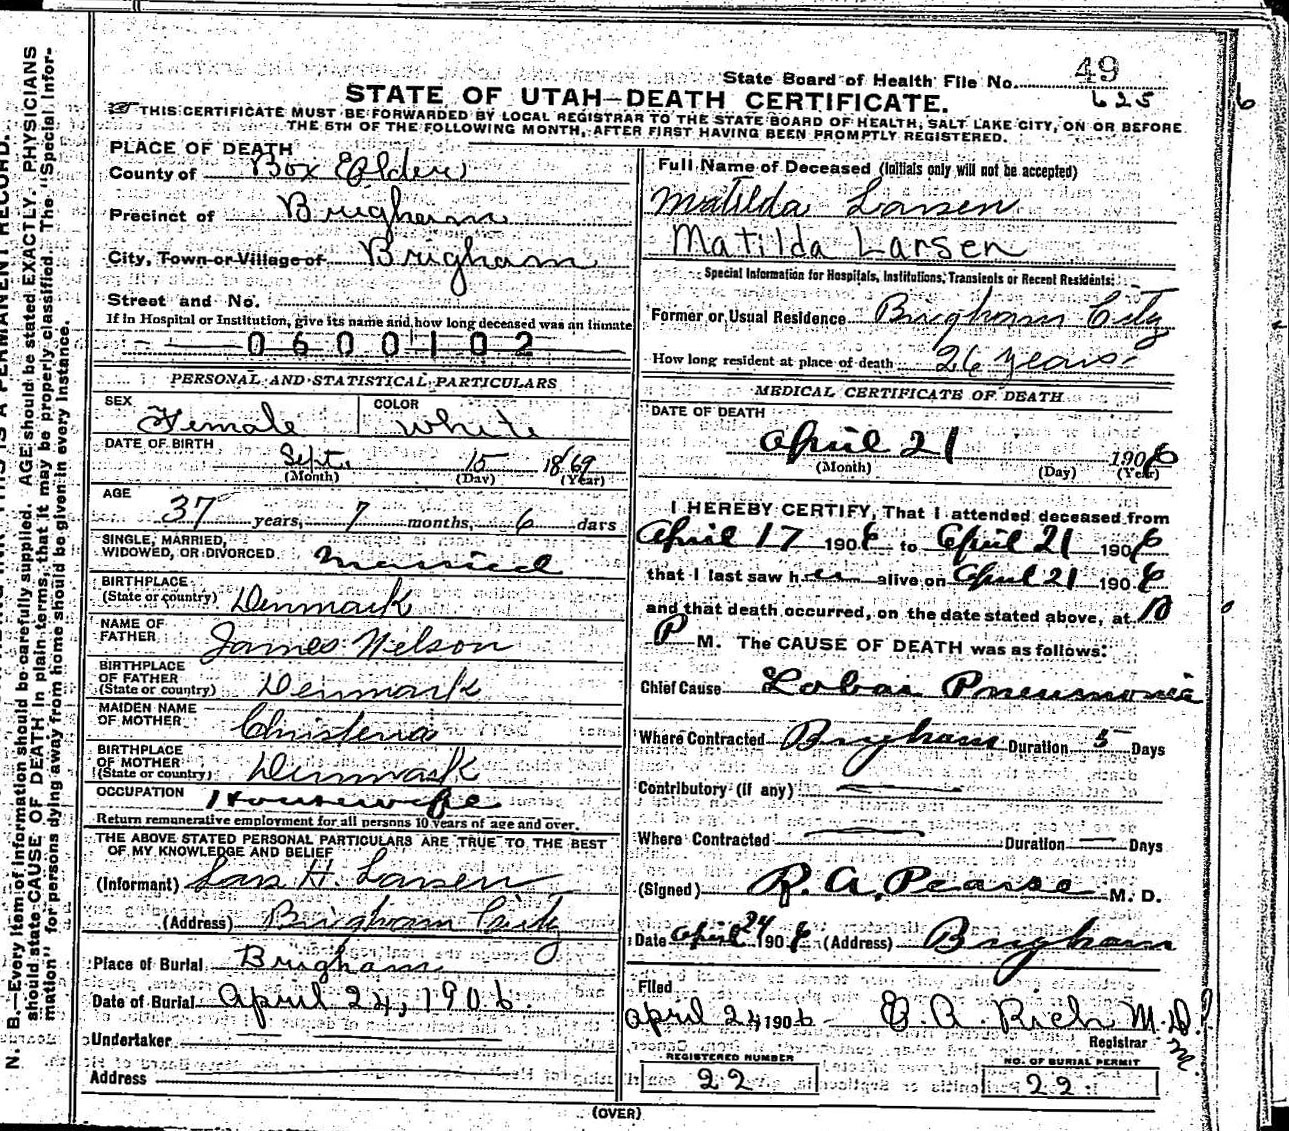 State Board of Health File No. 49
625
6
STATE OF UTAH—DEATH CERTIFICATE.
THIS CERTIFICATE MUST BE FORWARDED BY LOCAL REGISTRAR TO THE STATE BOARD OF HEALTH, SALT LAKE CITY, ON OR BEFORE
THE 5TH OF THE FOLLOWING MONTH, AFTER FIRST HAVING BEEN PROMPTLY REGISTERED.
PLACE OF DEATH
County of Box Elder
Precinct of Brigham
City, Town or Village of Brigham
Street and No.
If in Hospital or Institution, give its name and how long deceased was an inmate
0600102
PERSONAL AND STATISTICAL PARTICULARS
SEX Female COLOR White
DATE OF BIRTH Sept. 15 1869
(Month) (Day) (Year)
AGE 37 years, 7 months, 6 days
SINGLE, MARRIED,
WIDOWED, OR DIVORCED Married
BIRTHPLACE
(State or country) Denmark
NAME OF
FATHER James Nelson
BIRTHPLACE
OF FATHER
(State or country) Denmark
MAIDEN NAME
OF MOTHER Christena
BIRTHPLACE
OF MOTHER
(State or country) Denmark
OCCUPATION Housewife
Return remunerative employment for all persons 10 years of age and over.
THE ABOVE STATED PERSONAL PARTICULARS ARE TRUE TO THE BEST
OF MY KNOWLEDGE AND BELIEF
(Informant) Lars H. Larsen
(Address) Brigham City
Place of Burial Brigham
Date of Burial April 24, 1906.
Undertaker
Address
Full Name of Deceased (Initials only will not be accepted)
Matilda Larsen
Matilda Larsen
Special Information for Hospitals, Institutions, Transients or Recent Residents:
Former or Usual Residence Brigham City
How long resident at place of death 26 years
MEDICAL CERTIFICATE OF DEATH
DATE OF DEATH
April 21 1906
(Month) (Day) (Year)
I HEREBY CERTIFY, That I attended deceased from
April 17 1906 to April 21 1906
that I last saw her alive on April 21 1906
and that death occurred, on the date stated above, at 10
P M. The CAUSE OF DEATH was as follows:
Chief Cause Lobar Pneumonia
Where Contracted Brigham Duration 5 Days
Contributory (if any)
Where Contracted Duration — Days
(Signed) R. A. Pearse M. D.
Date April 24 1906 (Address) Brigham
Filed
April 24 1906 E. A. Rich M.D.
Registrar
REGISTERED NUMBER
22
NO. OF BURIAL PERMIT
22
(OVER)
N. B.—Every item of information should be carefully supplied. AGE should be stated EXACTLY. PHYSICIANS
should state CAUSE OF DEATH in plain terms, that it may be properly classified. The "Special Infor-
mation" for persons dying away from home should be given in every instance.